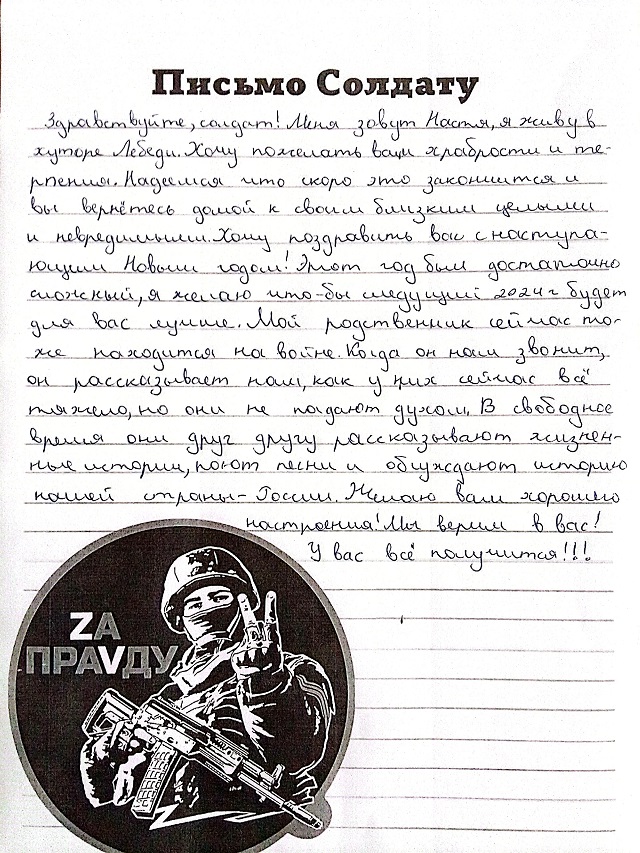 Письмо Солдату
Здравствуйте, солдат! Меня зовут Настя, я живу в
хуторе Лебеди. Хочу пожелать вам храбрости и те-
рпения. Надеемся что скоро это закончится и
вы вернётесь домой к своим близким целыми
и невредимыми. Хочу поздравить вас с наступа-
ющим Новым годом! Этот год был достаточно
сложный, я желаю что-бы следущий 2024 г будет
для вас лучше. Мой родственник сейчас то-
же находится на войне. Когда он нам звонит,
он рассказывает нам, как у них сейчас всё
тяжело, но они не падают духом. В свободное
время они друг другу рассказывают жизнен-
ные истории, поют песни и обсуждают историю
нашей страны - России. Желаю вам хорошего
настроения! Мы верим в вас!
У вас всё получится!!!
ZА
ПРАVДУ